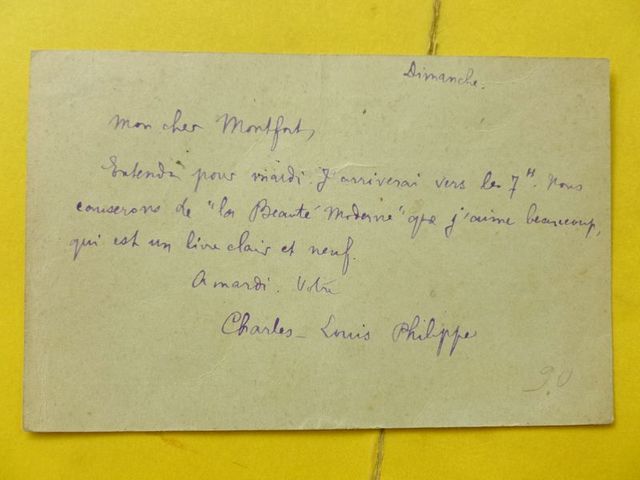 Dimanche.
Mon cher Montfort,
Entendu pour mardi. J'arriverai vers les 7H. Nous
causerons de "la Beauté Moderne" que j'aime beaucoup,
qui est un livre clair et neuf.
A mardi. Votre
Charles-Louis Philippe
90